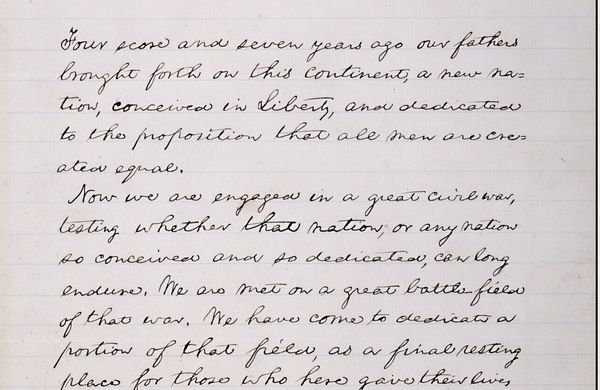 Four score and seven years ago our fathers
brought forth on this continent, a new na=
tion, conceived in Liberty, and dedicated
to the proposition that all men are cre=
ated equal.
Now we are engaged in a great civil war,
testing whether that nation, or any nation
so conceived and so dedicated, can long
endure. We are met on a great battle-field
of that war. We have come to dedicate a
portion of that field, as a final resting
place for those who here gave their lives